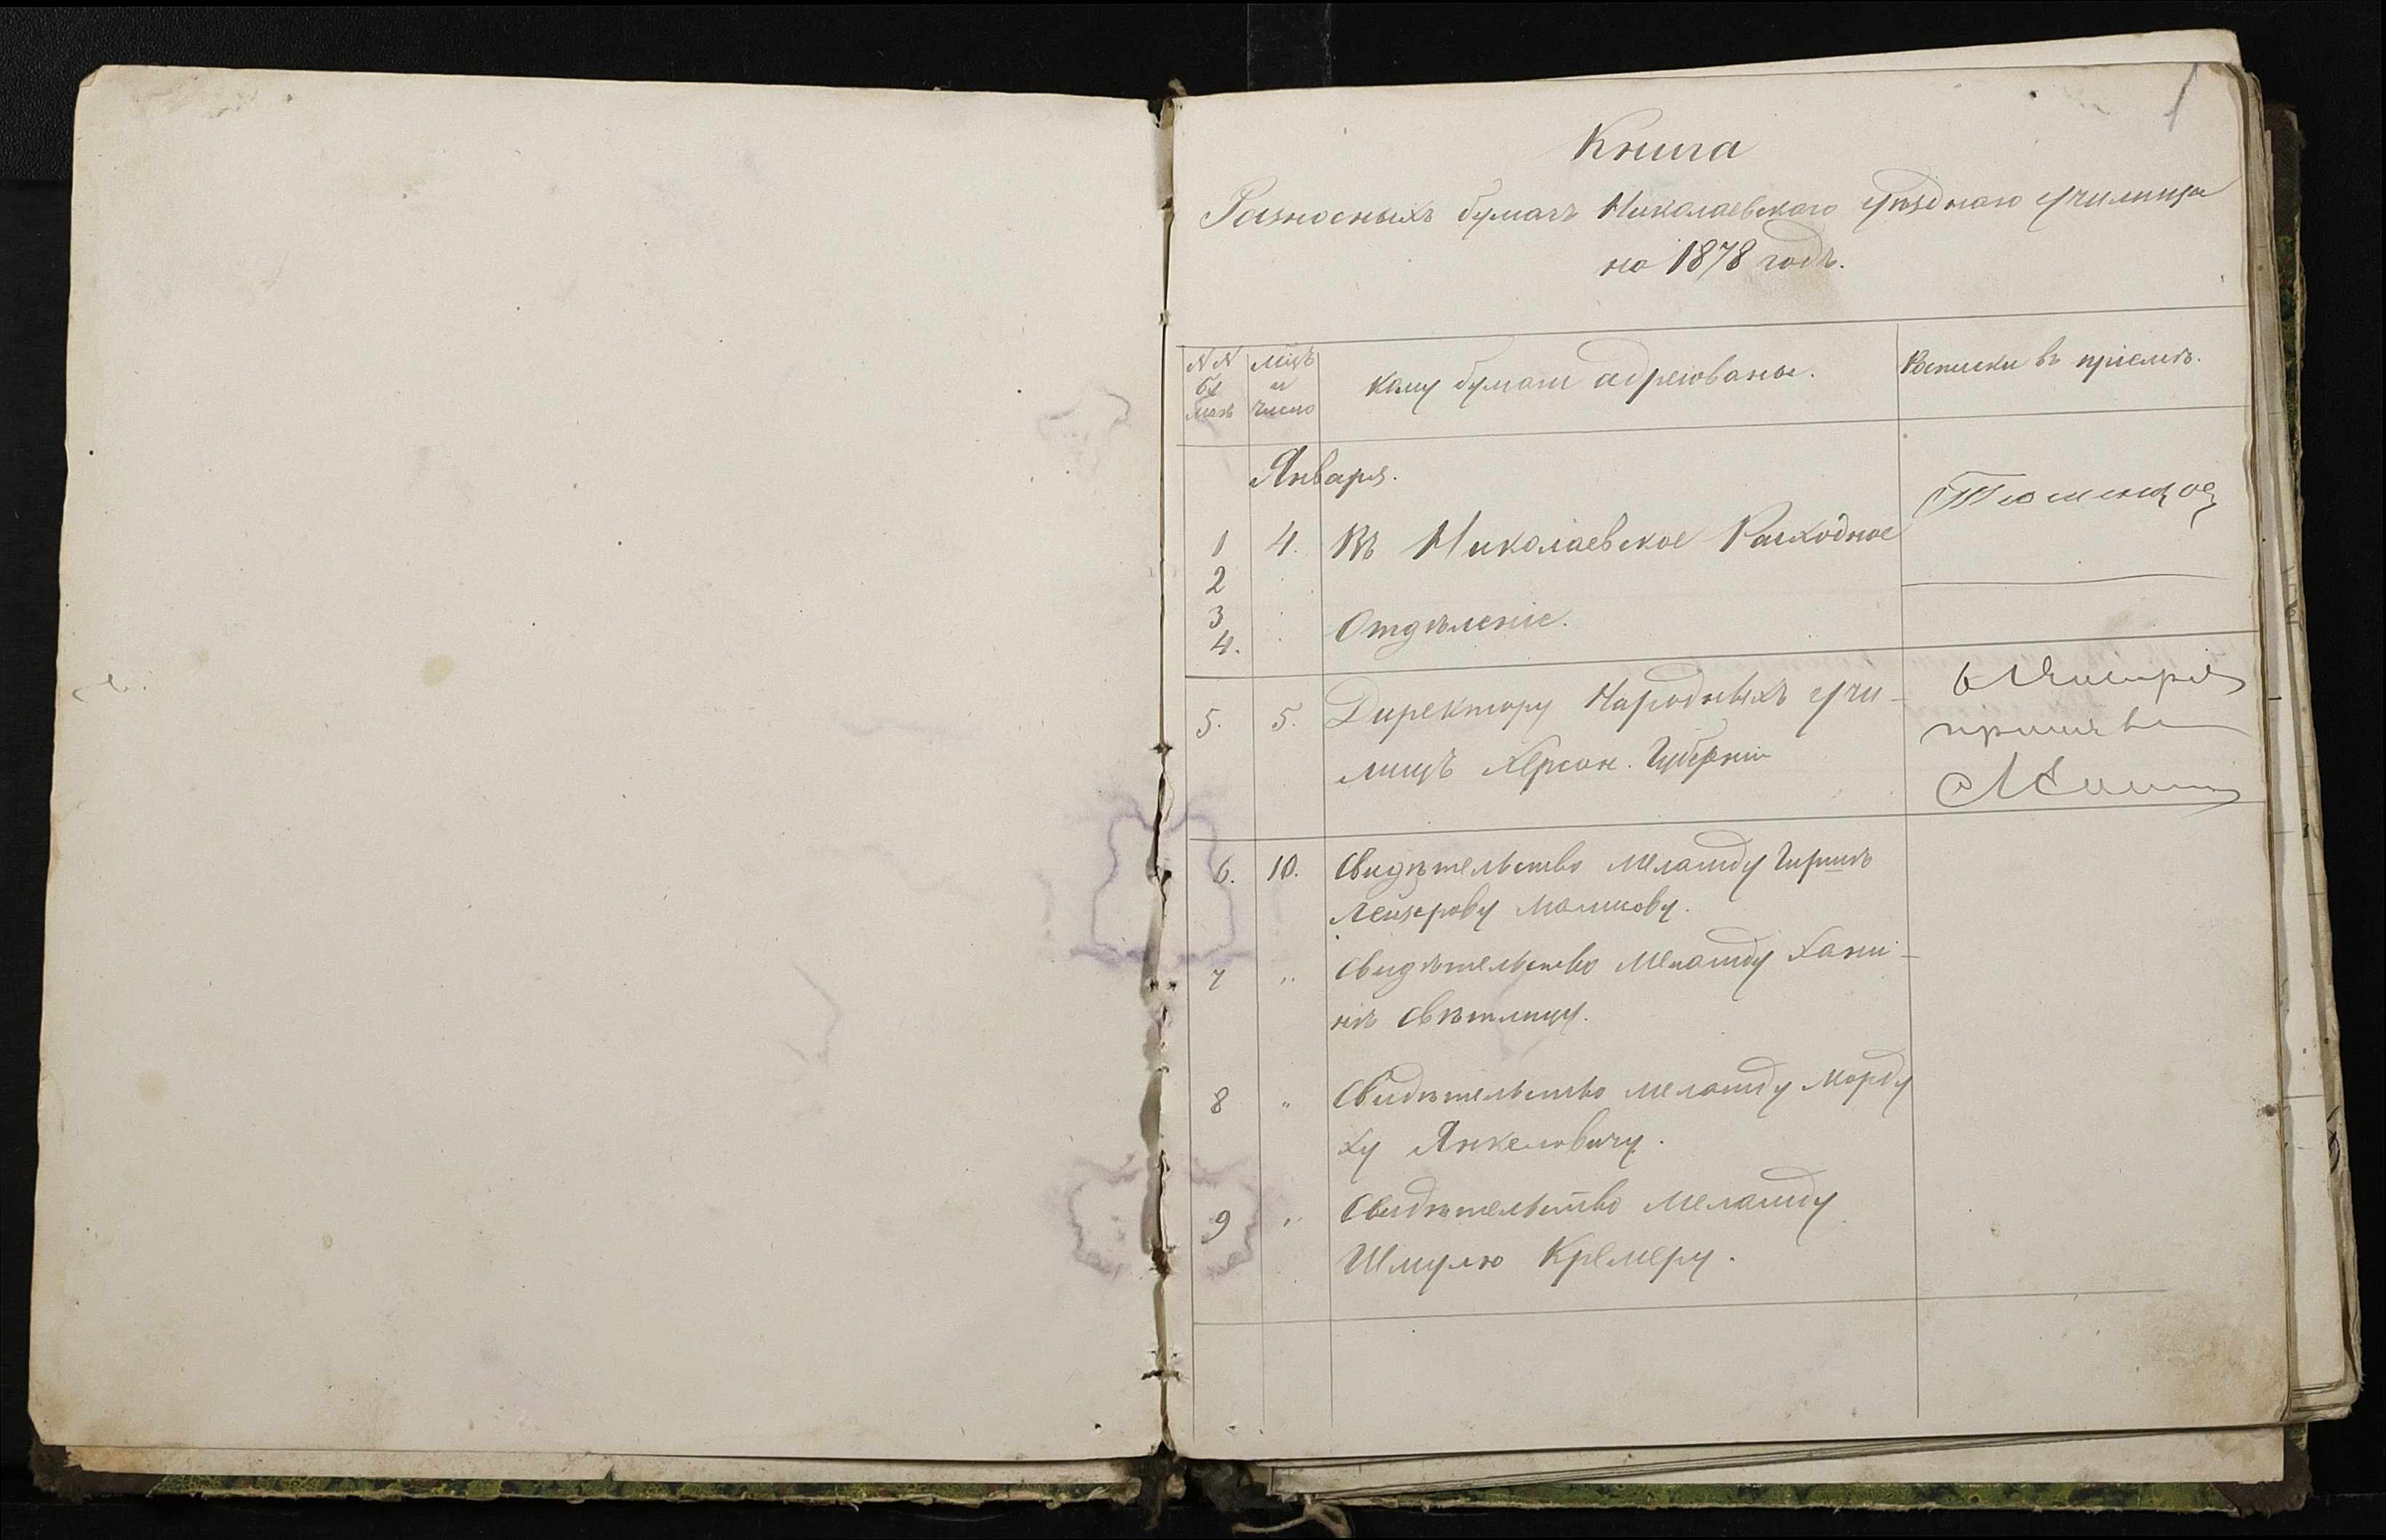 1
Книга
Разносныхъ бумагъ Николаевскаго уѣзднаго училища
на 1878 годъ.
NN бумагъ
Мцъ и число
Кому бумаги адресованы.
Росписки въ пріемѣ.
Января.
1 4. Въ Николаевское Расходное
2
3 Отдѣленіе.
4.
5. 5. Директору Народныхъ учи-
лищъ Херсон. Губерніи
принялъ
6. 10. Свидѣтельство Меламду Гиршѣ
Лейзерову Маликову.
7 " Свидѣтельство Меламду Хаки-
нѣ Свѣтлицу.
8 " Свидѣтельство меламду Морду
ху Янкелевичу.
9 " Свидѣтельство Меламду
Шмулю Кремеру.